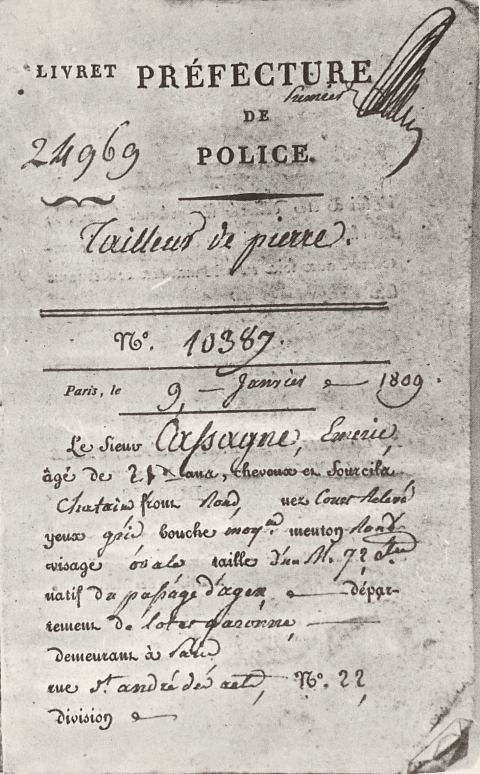 LIVRET PRÉFECTURE
24969 DE
POLICE.
Tailleur de pierre.
N°. 10387.
Paris, le 9 — Janvier — 1809.
Le Sieur Cassagne, Emeric,
âgé de ans, cheveux et Sourcils
Chatain front Rond nez Court Relevé
yeux gris bouche moy.ne menton Rond
visage ovale taille d'un M. 72 c.
natif du passage d'agen — dépar-
tement de lot et garonne, —
demeurant à Paris
rue S.t andré des arts, N°. 22
division —